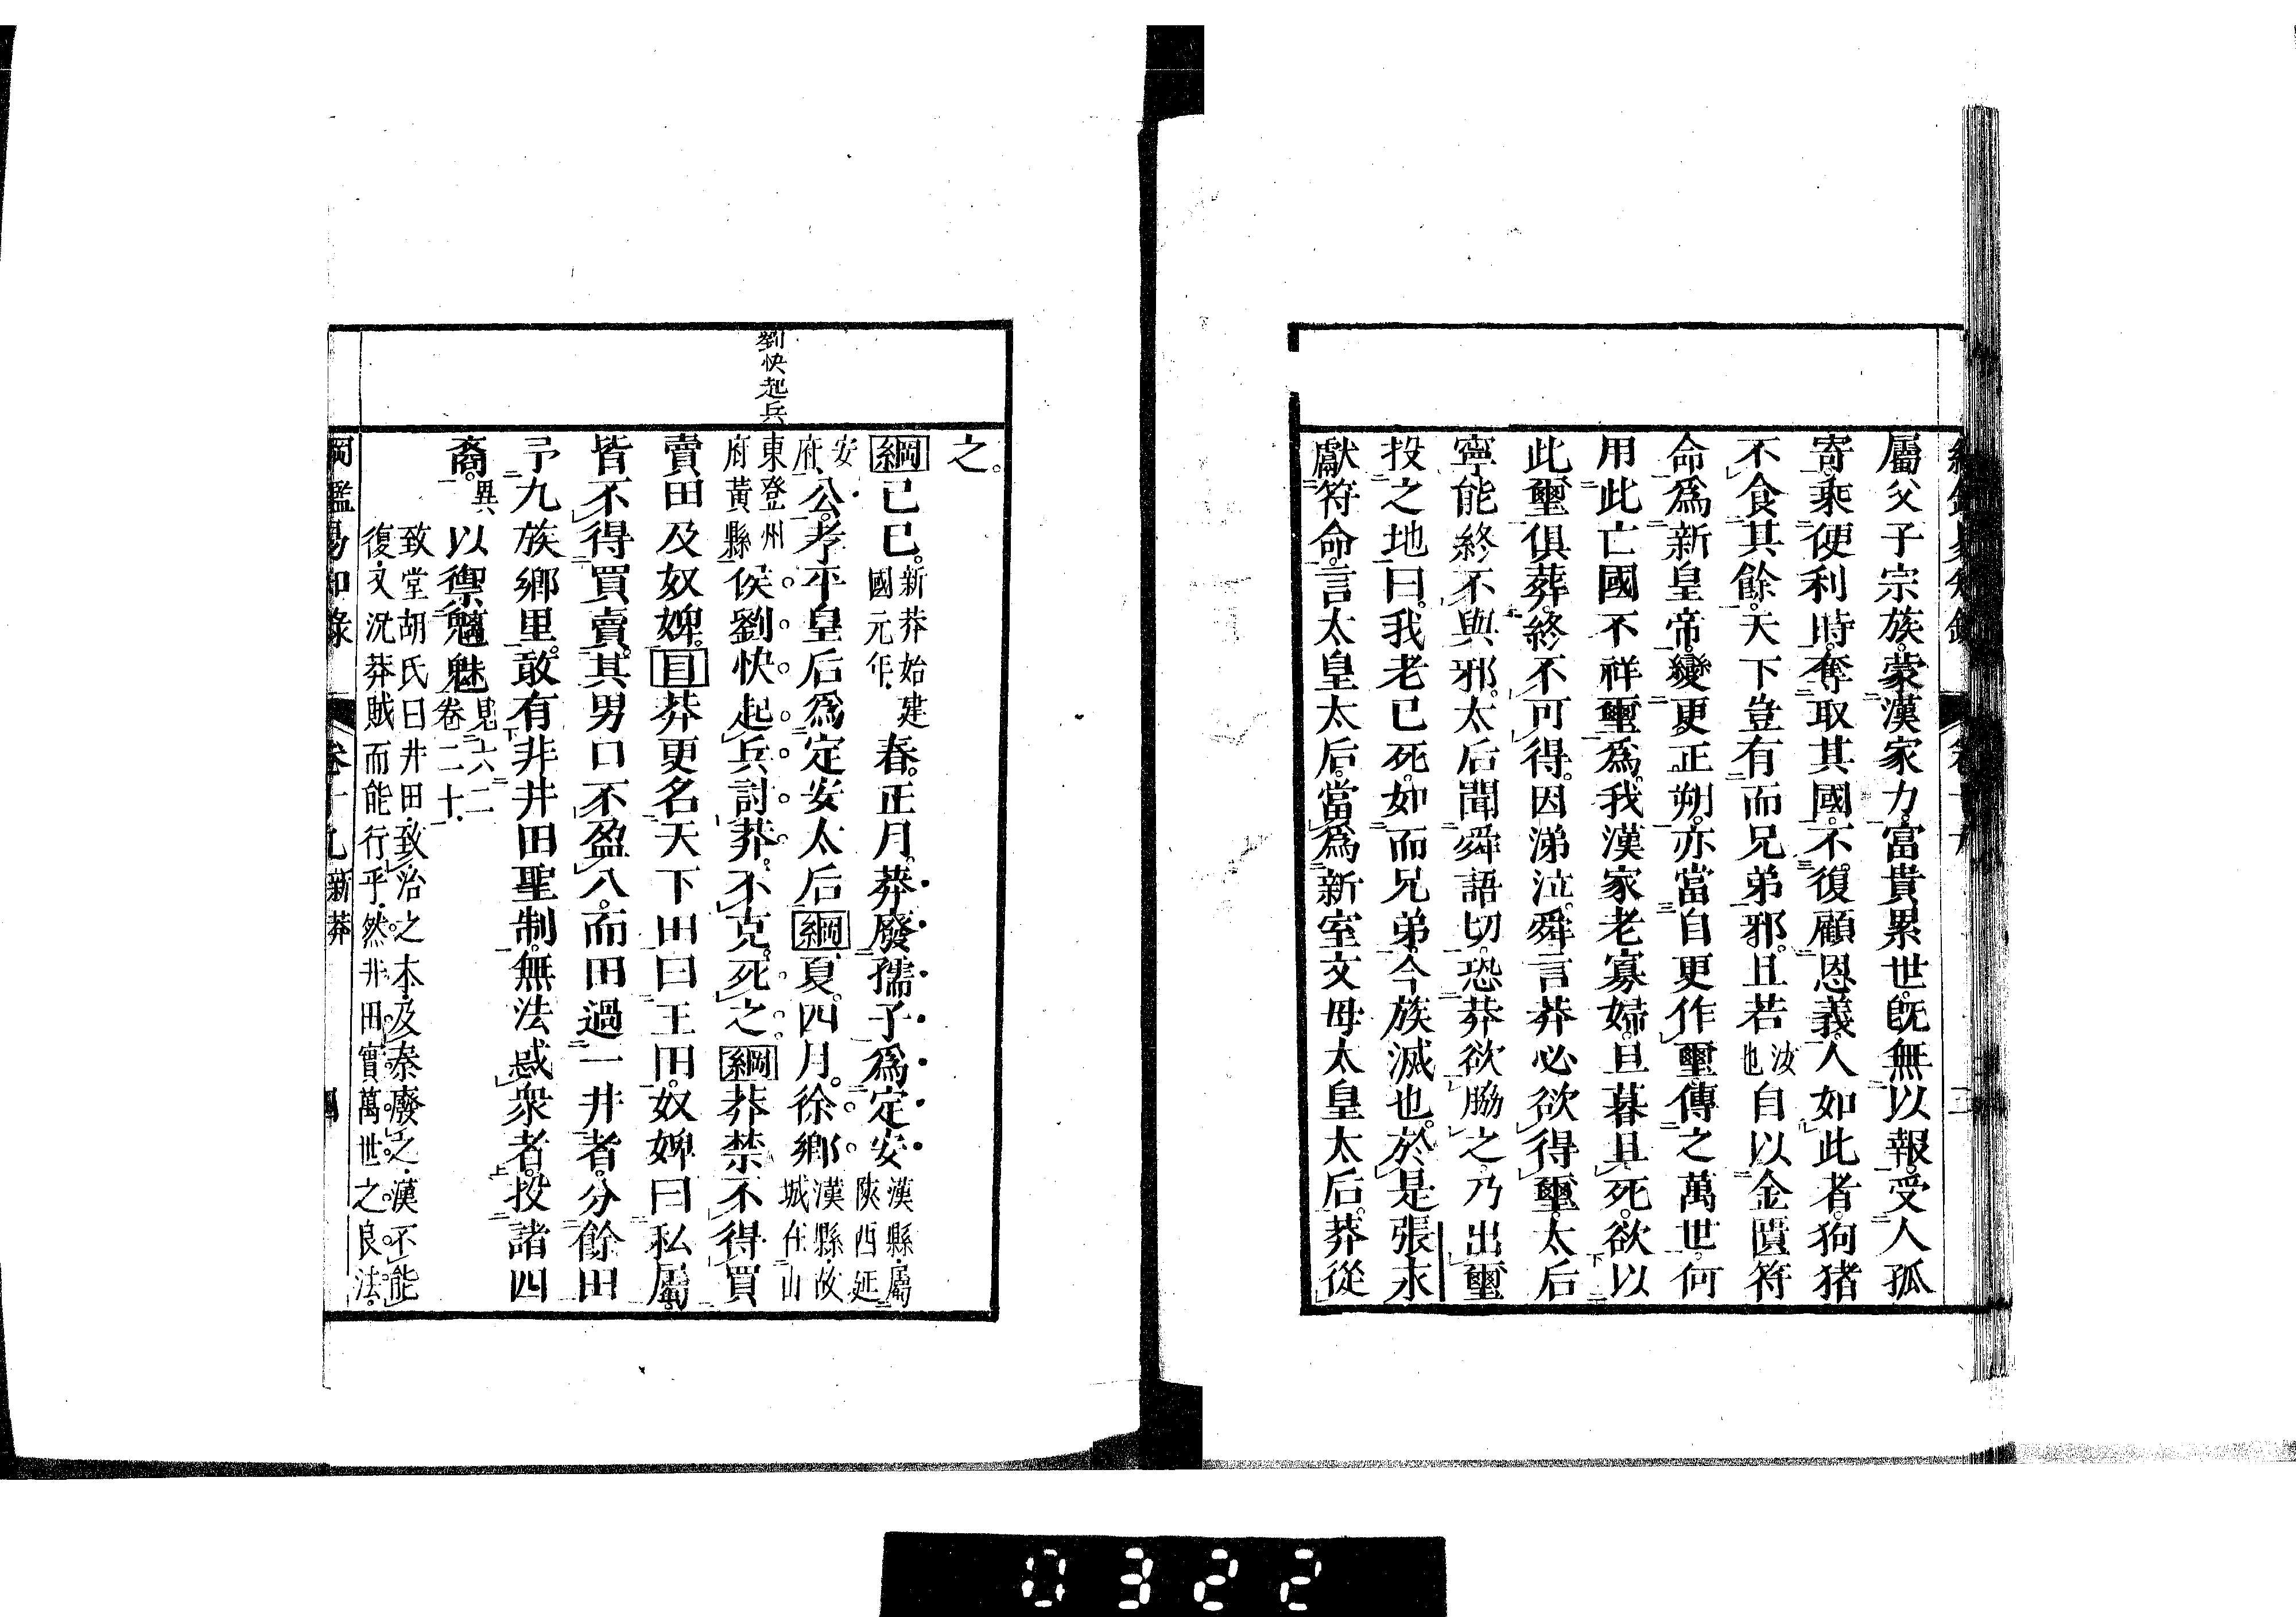 屬父子宗族。蒙漢家力。富貴累世。既無以報。受人孤
寄。乘便利時。奪取其國。不復顧恩義。人如此者。狗猪
不食其餘。天下豈有而兄弟邪。且若汝也自以金匱符
命爲新皇帝。變更正朔。亦當自更作璽。傳之萬世。何
用此亡國不祥璽爲。我漢家老寡婦。旦暮且死。欲以
此璽俱葬。終不可得。因涕泣。舜言莽必欲得璽。太后
寧能終不與邪。太后聞舜語切。恐莽欲脇之。乃出璽
投之地曰。我老已死。如而兄弟。今族滅也。於是張永
獻符命。言太皇太后。當爲新室文母太皇太后。莽從
之。
綱己巳。新莽始建國元年。春。正月。莽廢孺子爲定安漢縣。屬陝西延
安府。公。孝平皇后爲定安太后綱夏。四月。徐鄉漢縣。故城在山
劉快起兵
東登州府黃縣侯劉快起兵討莽。不克。死之綱莽禁不得買
賣田及奴婢。目莽更名天下田曰王田。奴婢曰私屬。
皆不得買賣。其男口不盈八。而田過一井者。分餘田
予九族鄉里。敢有非井田聖制。無法惑衆者。投諸四
裔。異以禦魑魅見六二卷二十
致堂胡氏曰井田。致治之本。及秦廢之。漢不能
復。又況莽賊而能行乎。然井田實萬世之良法。
綱鑑易知錄 卷十九 新莽 四